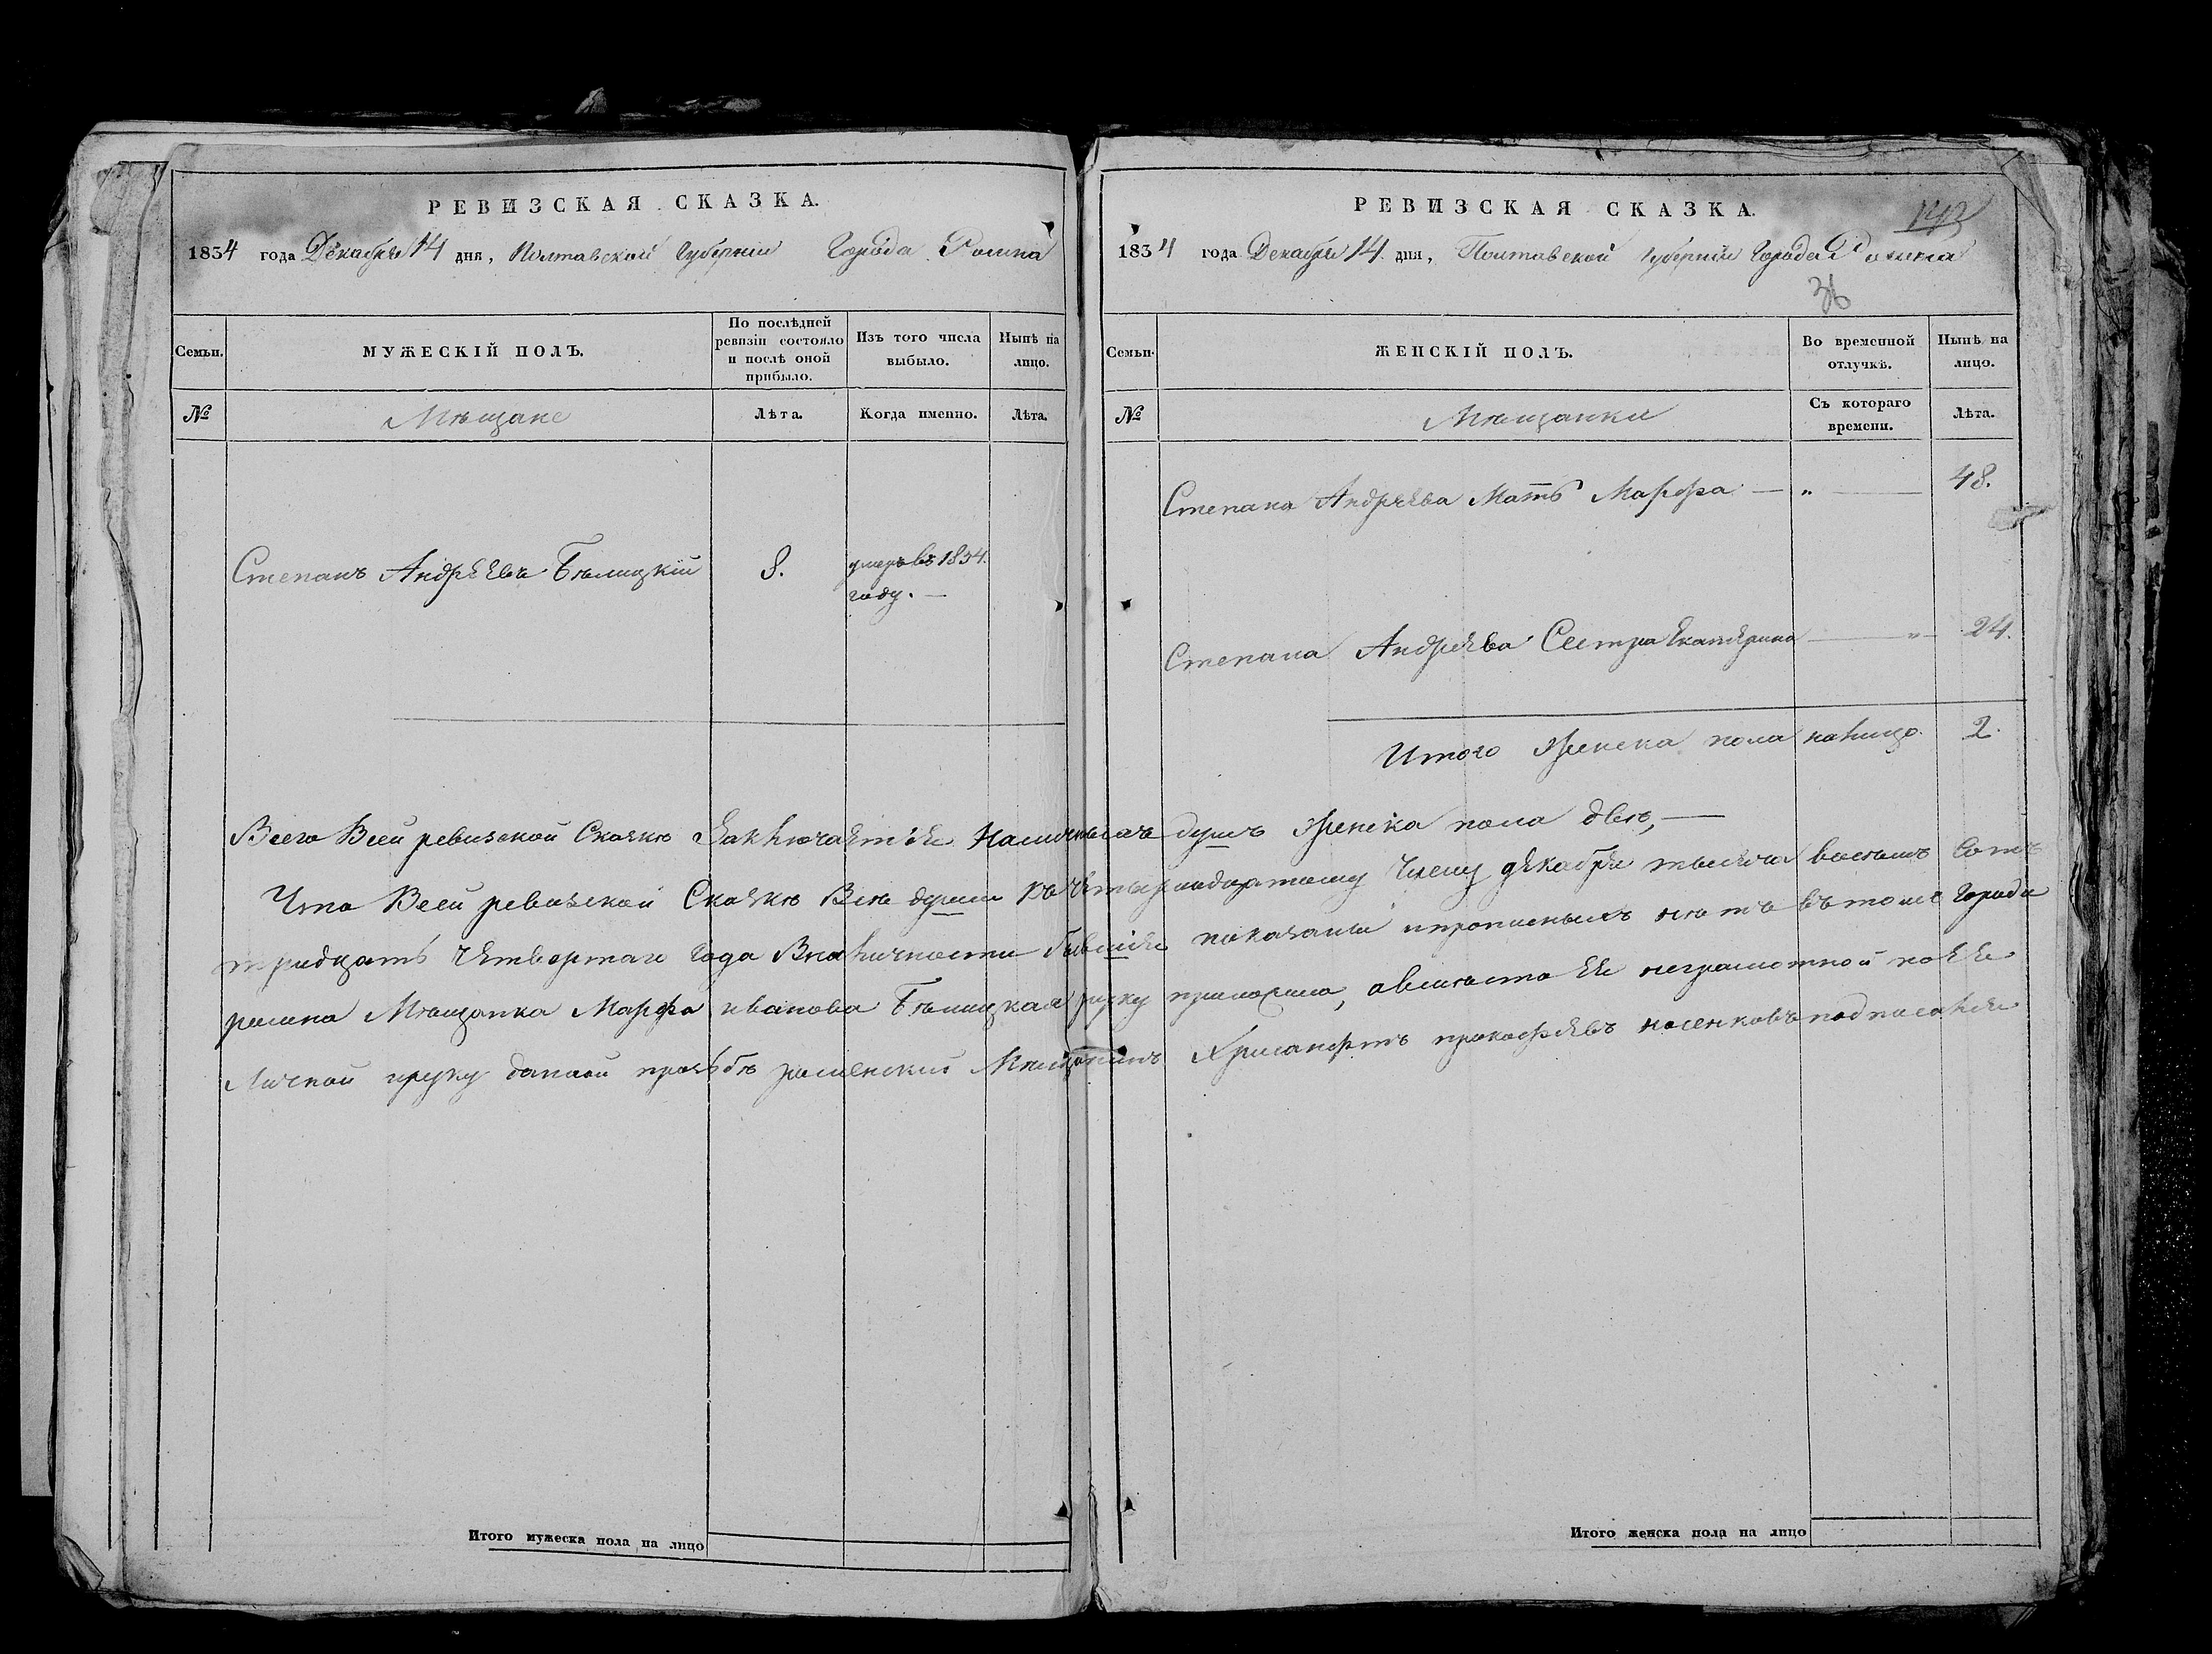 РЕВИЗСКАЯ СКАЗКА.
1834 года Декабря 14 дня, Полтавской Губернии Города Ромна
Семьи.
МУЖЕСКІЙ ПОЛЪ.
По послѣдней ревизіи состояло и послѣ оной прибыло.
Изъ того числа выбыло.
Нынѣ на лицо.
№
Мѣщане
Лѣта.
Когда именно.
Лѣта.
Степанъ Андрѣевъ Бѣлицкій 8. умеръ въ 1834.
году. —
РЕВИЗСКАЯ СКАЗКА.
143
1834 года Декабря 14 дня, Полтавской Губерніи Города Ромна
36
Семьи.
ЖЕНСКІЙ ПОЛЪ.
Во временной отлучкѣ.
Нынѣ на лицо.
№
Мѣщанки
Съ котораго времени.
Лѣта.
Степана Андрѣева Мать Марфа — „ — 48.
Степана Андрѣева Сестра Екатерина — „ — 24.
Итого Женска пола налицо. 2.
Всего Всей ревизской Сказкѣ Заключается Наличныхъ душъ Женска пола двѣ, —
Что Всей ревизской Сказкѣ Всѣ души Къ Четырнадцатому Числу декабря тысяча восемь Сотъ
тридцать Четвертаго Года Вналичности бывшія показаны ипрописныхъ нѣтъ втомъ Города
ромна Мѣщанка Марфа иванова Бѣлицкая руку приложила, авмѣсто Ее неграмотной поЕе
Личной ируку данной прозьбѣ роменский Мѣщанинъ Хрисанфтъ прокофьевъ носенковъ подписался
Итого мужеска пола на лицо
Итого женска пола на лицо